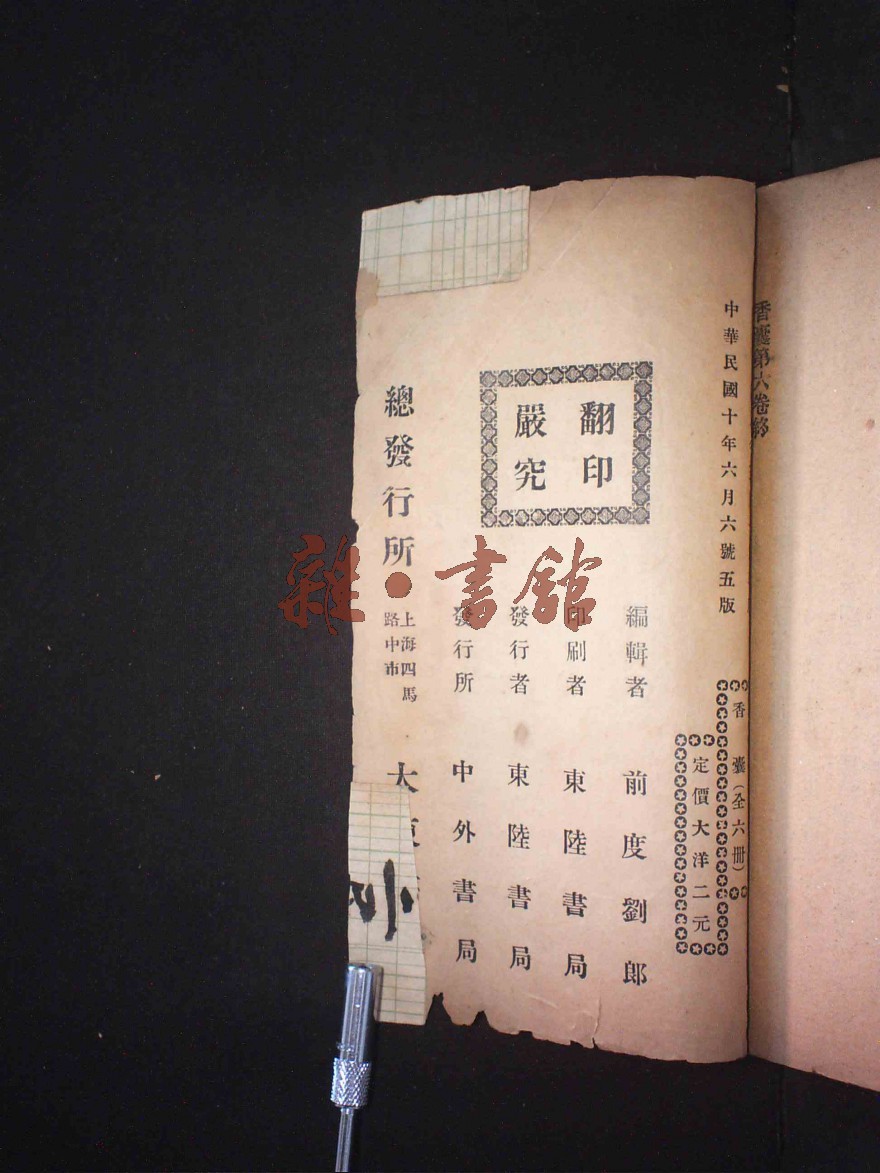 香囊第六卷終
中華民國十年六月六號五版
香囊(全六冊)
定價大洋二元
編輯者 前度劉郎
印刷者 東陸書局
發行者 東陸書局
發行所 中外書局
翻印
嚴究
總發行所 上海四馬路中市 大東
雜·書館